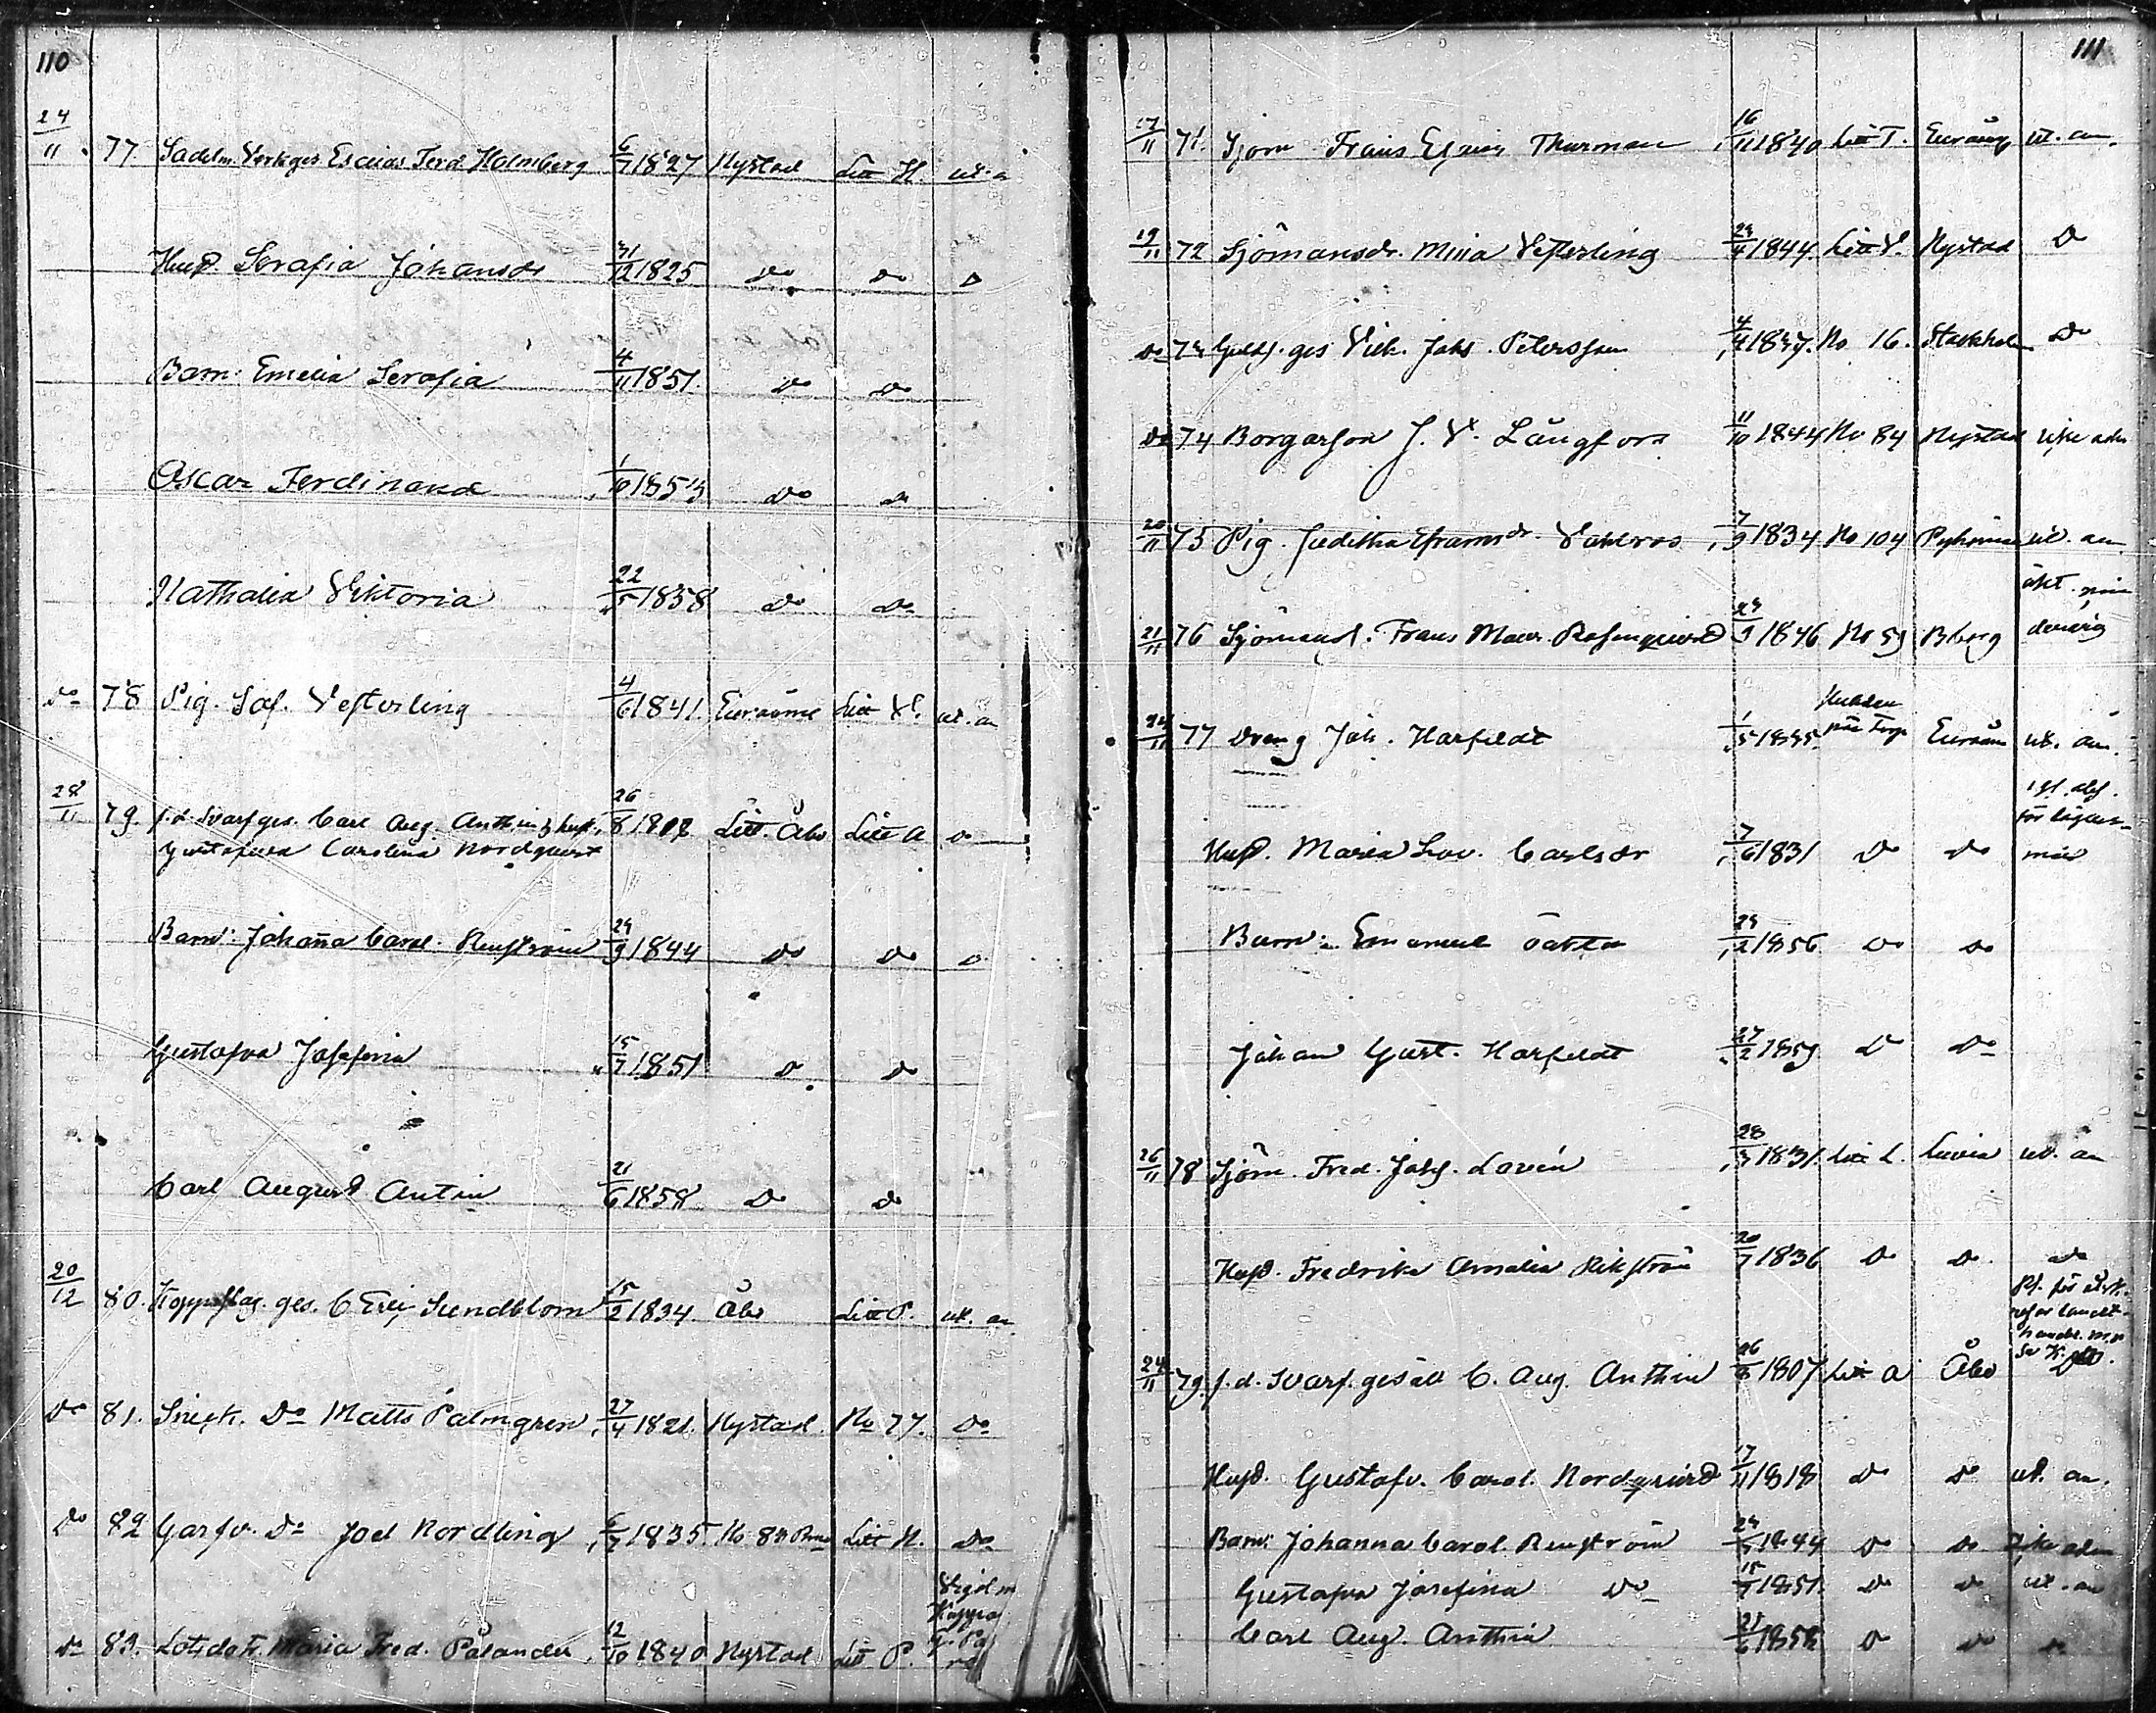 110
24/11 77 Sadelm. Verkges Esaias Ferd. Holmberg 6/7 1827 Nystad Litt H. ut. a
Hust. Serafia Johansdr 31/12 1825 Do Do D
Barn: Emelia Serafia 4/11 1851. Do Do
Oscar Ferdinand 1/10 1853 Do Do
Nathalia Viktoria 22/5 1858 Do Do
Do 78 Pig. Sof. Vesterling 4/6 1841. Euraåme Litt V. ut. an
28/11 79. f.d. Svarfges. Carl Aug. Anthin, hust. 26/8 1808 Litt. Åbo Litt A D
Gustafva Carolina Nordquist
Barn: Johaña Carol. Renström 24/9 1844 Do Do D
Gustafva Josefina 15/7 1851 D Do
Carl August Antin 21/6 1858 D D
20/12 80. Kopparslag. ges. C Eric Sundblom 15/2 1834. Åbo Litt P. ut. an.
Do 81. Snick. Do Matts Palmgren 27/4 1821. Nystad. No 77. Do
Do 82 Garfv. Do Joel Nordling 6/7 1835. No 83 Litt N. Do
Do 83. Lotsdotr. Maria Fred. Pålander 12/10 1840 Nystad Litt P.
111
17/11 71. Sjöm Frans Efraim Thurman 16/11 1840 Litt T. Euraåm ut. an.
19/11 72 Sjömansdr. Mina Vesterling 24/4 1844. Litt V. Nystad D
Do 73 Gulds. ges Vict. Johs Petersson 4/4 1837. No 16. Stockholm Do
Do 74 Borgarson J. V. Långfors 11/10 1844 No 84 Nystad icke adm
20/11 75 Pig. Juditha Efraimsdr. Vahlroos 7/9 1834 No 104 Pyhäma ut. an.
21/11 76 Sjömansl. Frans Maur. Rosenqvist 23/9 1846 No 59 Bborg
24/11 77 Dreng Joh. Harfeldt 1/5 1835. Euraåm ut. an.
Hust. Maria Lov. Carlsdr 7/6 1831 D Do
Barn: Emanuel oäkta 24/12 1856 Do Do
Johan Gust. Harfeldt 27/2 1859 D Do
26/11 78 Sjöm. Fred. Johs. Lovén 28/3 1831. Litt L. Luvia ut. an
Hust. Fredrika Amalia Rikström 20/7 1836 D D. Do
24/11 79 f.d. Svarf. gesäll C. Aug. Anthin 26/8 1807 Litt A Åbo
Hust. Gustafv. Carol. Nordqvist 17/11 1818 Do D ut. an.
Barn: Johanna Carol. Renström 24/9 1844 D Do icke adm
Gustafva Josefina Do 15/7 1851. D Do ut. an
Carl Aug. Anthin 21/6 1858 D Do D.